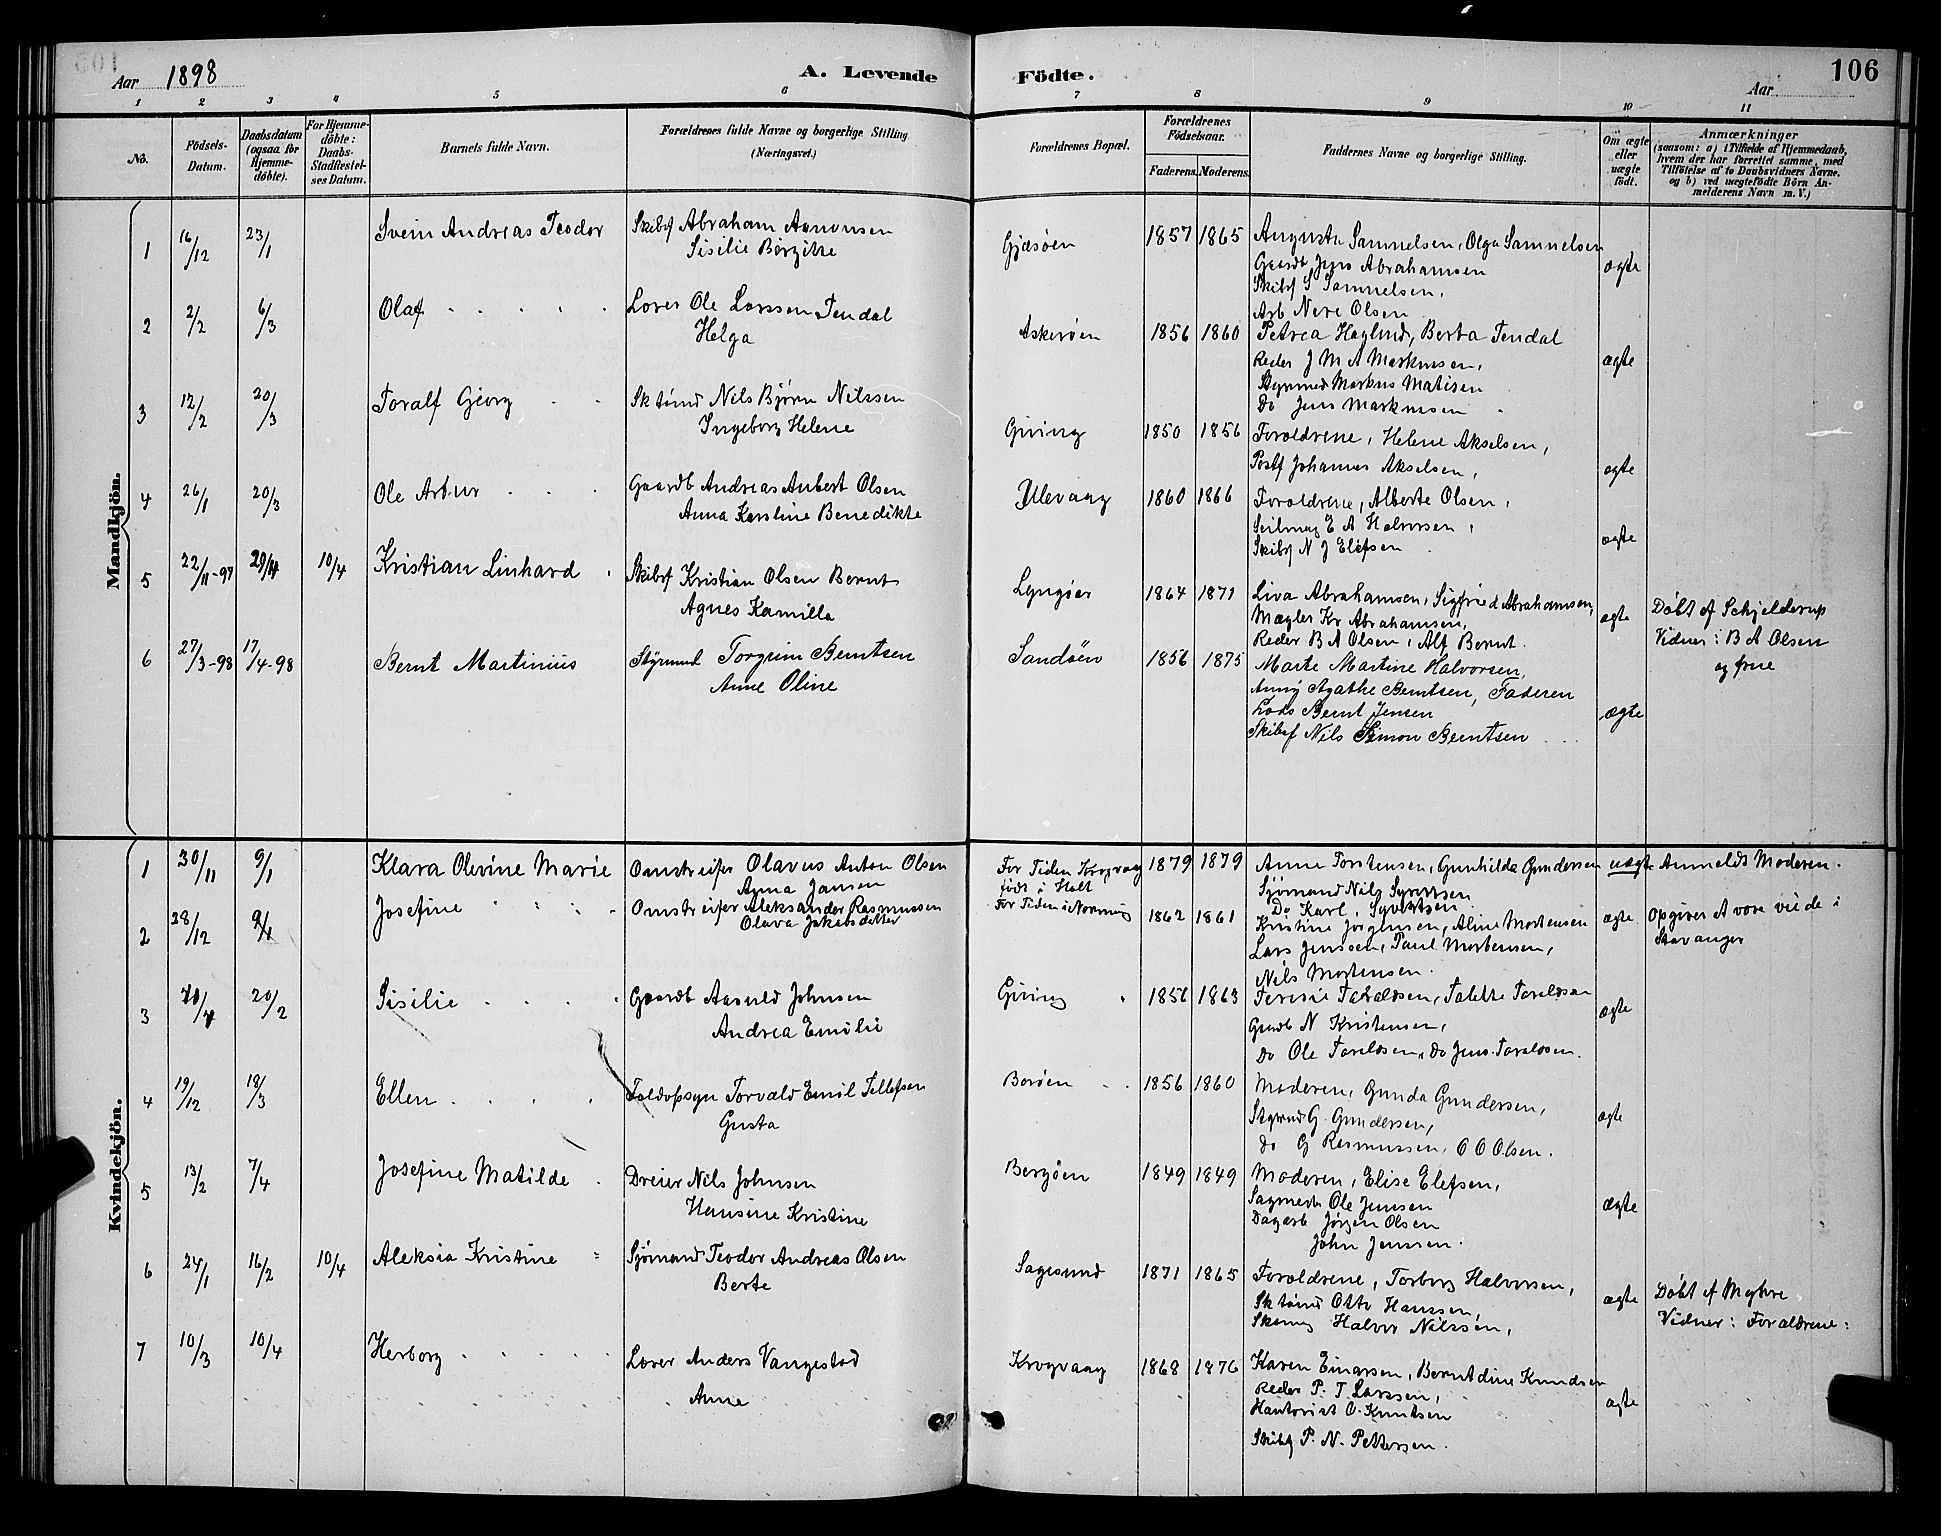 Aar 1898 A. Levende Födte. Aar 106
1 2 3 4 5 6 7 8 9 10 11
No.
Födsels-Datum.
Daabsdatum (ogsaa for Hjemme-döbte).
For Hjemme-döbte: Daabs-Stadfæstel-ses Datum.
Barnets fulde Navn.
Forældrenes fulde Navne og borgerlige Stilling
(Næringsvei.)
Forældrenes Bopæl.
Forældrenes Födselsaar.
Faderens. Moderens.
Faddernes Navne og borgerlige Stilling.
Om ægte eller uægte födt.
Anmærkninger
(saasom: a) i Tilfælde af Hjemmedaab,
hvem der har forrettet samme, med
Tilföielse af to Daabsvidners Navne.
og b) ved uægtefödte Börn An-
melderens Navn m. V.)
Mandkjön.
1 16/12 23/1 Svein Andreas Teodor Skibsf Abraham Asmunsen Gjæsøen 1857 1865 Augusta Samuelsen, Olga Samuelsen ægte
Sisilie Børgitte
Gaardb Jens Abrahamsen
Skibsf S Samuelsen,
Arb Nere Olsen
2 2/2 6/3 Olaf Lærer Ole Larssen Tendal Askerøen 1856 1860 Petrea Haglund, Berta Tendal ægte
Helga
Reder J M A Markussen,
Styrmnd Markus Matisen
Do Jens Markussen
3 12/2 20/3 Toralf Georg Sktømd Nils Bjørn Nilssen Giving 1850 1856 Forældrene, Helene Akselsen, ægte
Ingeborg Helene
Postf Johannes Akselsen,
4 26/1 20/3 Ole Artur Gaardb Andreas Aubert Olsen Ulevaag 1860 1866 Forældrene, Alberte Olsen, ægte
Anna Karoline Benedikte
Seilmag E A Halvorsen,
Skibsf N J Elefsen
5 22/11-97 10/4 Kristian Linhard Skibsf Kristian Olsen Bernt Lyngøer 1864 1871 Liva Abrahamsen, Sigfried Abrahamsen, ægte Døbt af Schjelderup
Agnes Kamilla
Mægler Kr Abrahamsen,
Reder B A Olsen, Alf Bernt.
Vidner: B A Olsen
og frue
6 27/3-98 17/4-98 Bernt Martinius Styrmnd Torgrim Berntsen Sandøen 1856 1875 Marte Martine Halvorsen, ægte
Anne Oline
Anny Agathe Berntsen, Faderen
Lods Bernt Jensen
Skibsf Nils Simon Berntsen
Kvindekjön.
1 30/11 9/1 Klara Olevine Marie Omstreifer Olavus Anton Olsen For Tiden Krogvaag 1879 1879 Anne Torstensen, Gunhilda Gundersen uægte Anmeldt Moderen.
Anna Jansen
født i Holt
Sjømand Nils Syvertsen
Do Karl, Syvertsen
2 28/12 Josefine Omstreifer Aleksander Rasmussen 1862 1861 Kristine Jørgensen, Aline Mortensen ægte Opgives at være viede i
Olava Jakobsdatter
Lars Jenssen, Paul Mortensen,
Stavanger
Nils Mortensen.
3 20/2 Sisilie Gaardb Aasuld Johnsen Giving 1856 1863 Teresie Taraldsen, Talette Taraldsen ægte
Andrea Emilie
Gaardb N Kristensen,
Do Ole Taraldsen, Do Jens Taraldsen.
4 19/12 18/3 Ellen Toldopsyn Torvald Emil Tellefsen Borøen 1856 1860 Moderen, Gunda Gundersen, ægte
Gusta
Styrmnd G. Gundersen,
Do G Rasmussen, O O Olsen.
5 13/2 7/4 Josefine Matilde Dreier Nils Johnsen Bergøen 1849 1849 Moderen, Elise Elefsen, ægte
Hansine Kristine
Sagmestr Ole Jensen
Dagarb Jørgen Olsen
John Jenssen.
6 24/1 16/2 10/4 Aleksia Kristine Sjømand Teodor Andreas Olsen Sagesund 1871 1865 Forældrene, Torborg Halvorsen, ægte Døbt af Myhre
Berte
Sktømd Otto Hanssen,
Halvor Nilssen,
Vidner: Forældrene:
7 10/3 10/4 Herborg Lærer Anders Vangestad Krogvaag 1868 1876 Karen Einarsen, Berntdine Knudsen ægte
Anne
Reder P. T. Larssen,
O. Knutsen
Skibsf P. N. Pettersen.